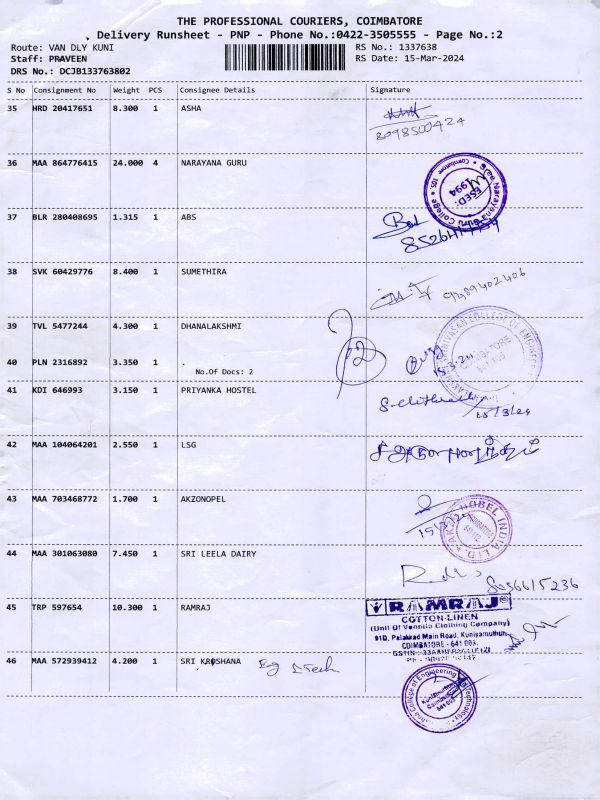 THE PROFESSIONAL COURIERS, COIMBATORE
Delivery Runsheet - PNP - Phone No.:0422-3505555 - Page No.:2
Route: VAN DLY KUNI
RS No.: 1337638
Staff: PRAVEEN
RS Date: 15-Mar-2024
DRS No.: DCJB133763802
S No Consignment No Weight PCS Consignee Details Signature
35 HRD 20417651 8.300 1 ASHA
8098500424
36 MAA 864776415 24.000 4 NARAYANA GURU
1994
37 BLR 280408695 1.315 1 ABS
38 SVK 60429776 8.400 1 SUMETHIRA
9489402406
39 TVL 5477244 4.300 1 DHANALAKSHMI
COIMBATORE
15-3-24
40 PLN 2316892 3.350 1 .
No.Of Docs: 2
41 KDI 646993 3.150 1 PRIYANKA HOSTEL
15/3/24
42 MAA 104064201 2.550 1 LSG
43 MAA 703468772 1.700 1 AKZONOPEL
NOBEL INDIA LTD.
44 MAA 301063080 7.450 1 SRI LEELA DAIRY
8056615236
45 TRP 597654 10.300 1 RAMRAJ
RAMRAJ
COTTON-LINEN
(Unit Of Vannila Clothing Company)
91D, Palakkad Main Road, Kuniyamuthur,
COIMBATORE - 641 008.
46 MAA 572939412 4.200 1 SRI KRUSHANA Eng &Tech
College of Engineering
Technology